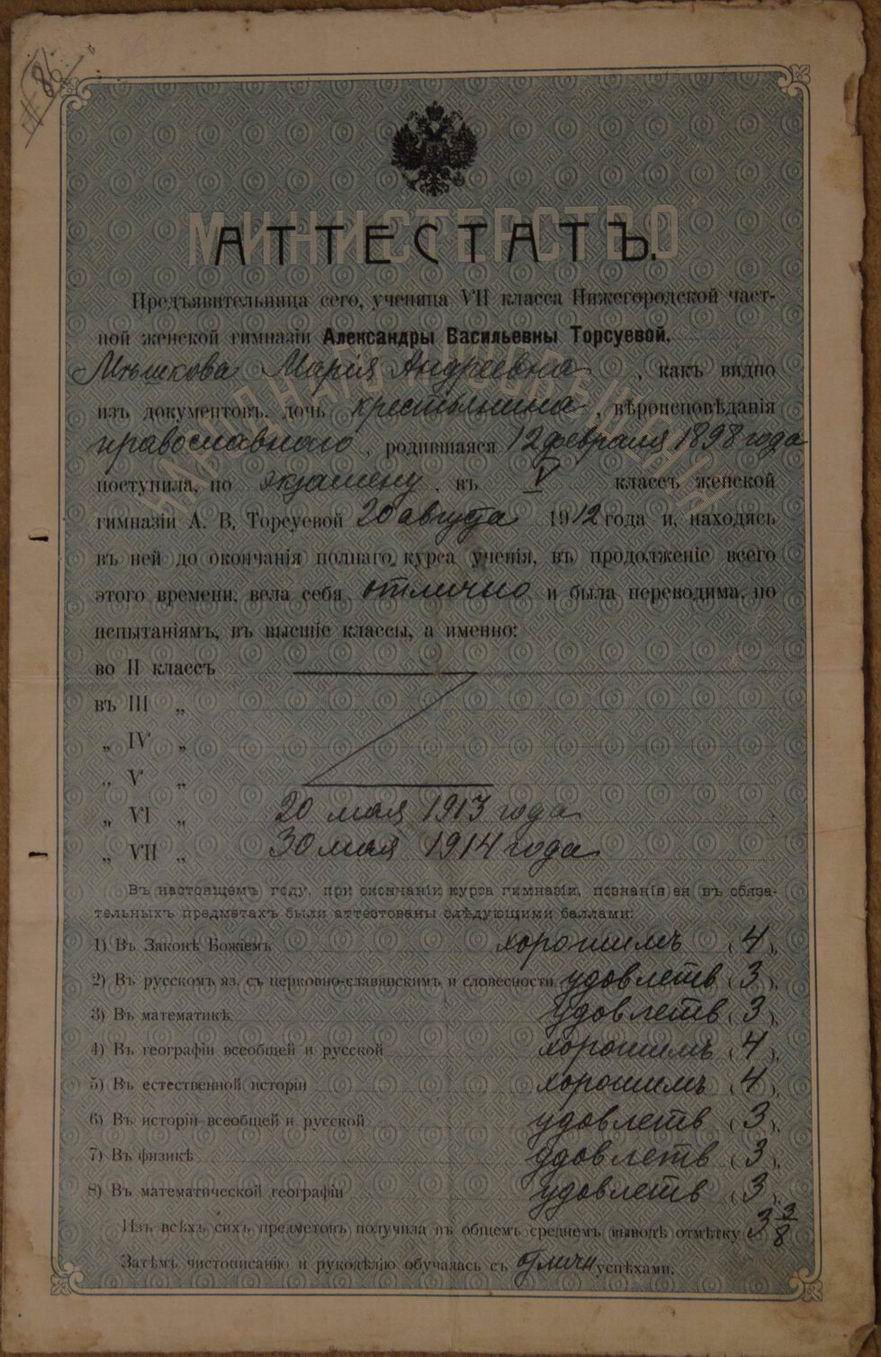 МИНИСТЕРСТВО
АТТЕСТАТЪ.
Предъявительница сего, ученица VII класса Нижегородской част-
ной женской гимназіи Александры Васильевны Торсуевой,
Мѣшкова Марія Андреевна, какъ видно
изъ документовъ, дочь крестьянина, вѣроисповѣданія
православнаго, родившаяся 12 февраля 1898 года
поступила, по экзамену, въ V классъ женской
гимназіи А. В. Торсуевой 20 августа 1912 года и, находясь
въ ней до окончанія полнаго курса ученія, въ продолженіе всего
этого времени, вела себя отлично и была переводима, по
испытаніямъ, въ высшіе классы, а именно:
во II классъ
въ III „
„ IV „
„ V „
„ VI „ 20 мая 1913 года
„ VII „ 30 мая 1914 года
Въ настоящемъ году, при окончаніи курса гимназіи, познанія ея въ обяза-
тельныхъ предметахъ были аттестованы слѣдующими баллами:
1) Въ Законѣ Божіемъ хорошимъ (4),
2) Въ русскомъ яз. съ церковно-славянскимъ и словесности удовлетв (3),
3) Въ математикѣ удовлетв (3),
4) Въ географіи всеобщей и русской хорошимъ (4),
5) Въ естественной исторіи хорошимъ (4),
6) Въ исторіи всеобщей и русской удовлетв (3),
7) Въ физикѣ удовлетв (3),
8) Въ математической географіи удовлетв (3),
Изъ всѣхъ сихъ предметовъ получила въ общемъ среднемъ выводѣ отмѣтку 3 3/8
Затѣмъ чистописанію и рукодѣлію обучалась съ отличн успѣхами.